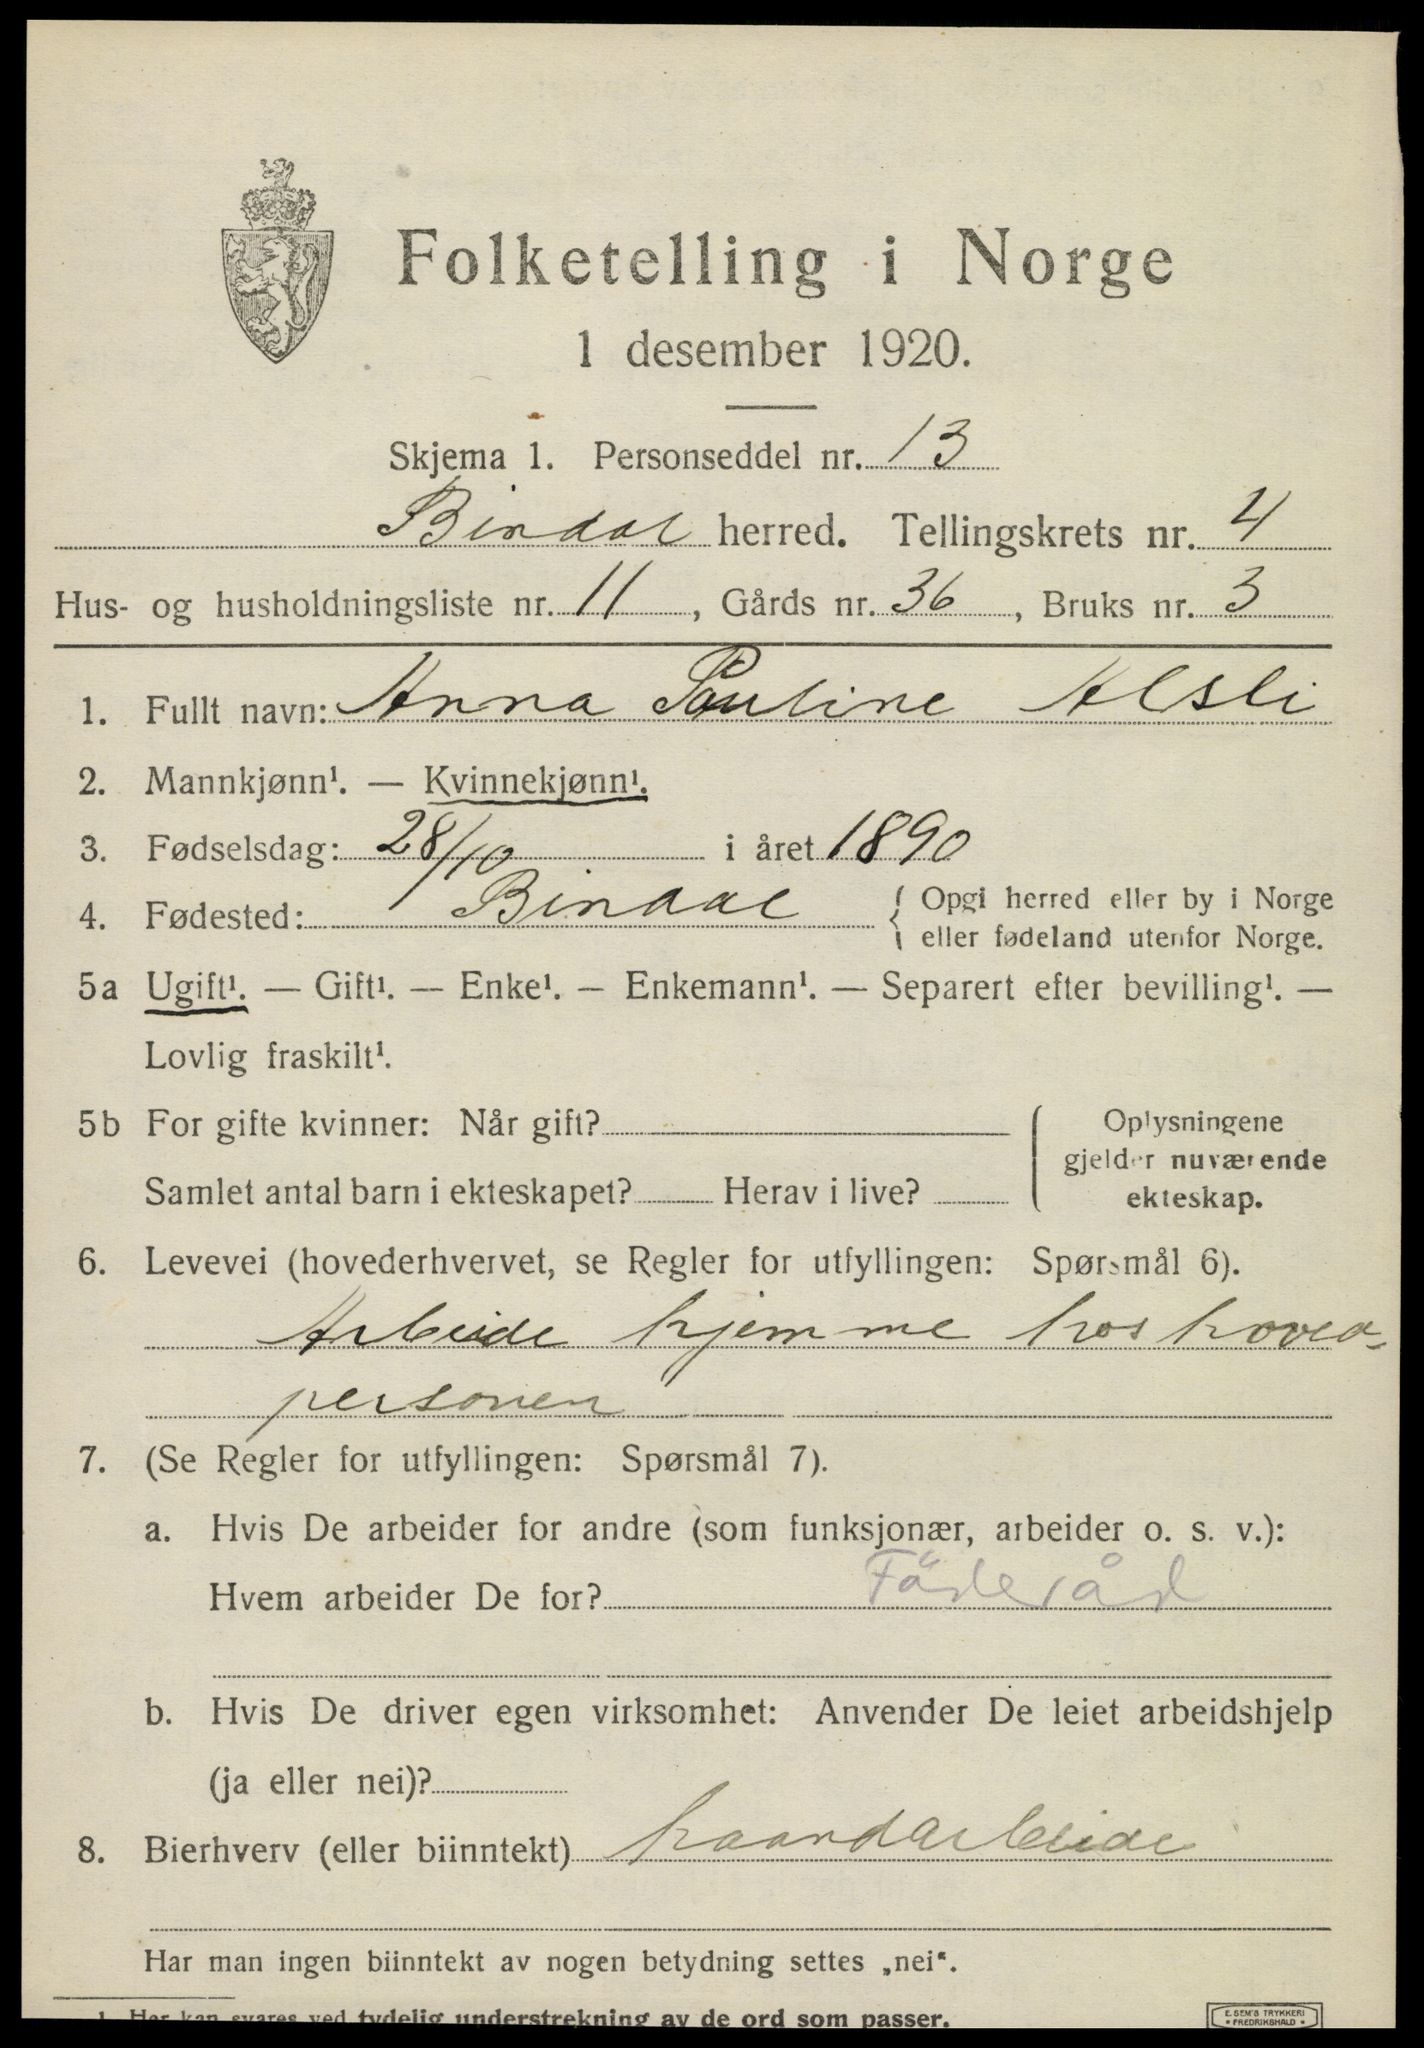 Folketelling i Norge
1 desember 1920.
Skjema 1. Personseddel nr. 13
Bindal herred. Tellingskrets nr. 4
Hus- og husholdningsliste nr. 11, Gårds nr. 36, Bruks nr. 3
1. Fullt navn: Anna Pauline Alsli
2. Mannkjønn¹. — Kvinnekjønn¹.
3. Fødselsdag: 28/10 i året 1890
4. Fødested: Bindal { Opgi herred eller by i Norge
eller fødeland utenfor Norge.
5a Ugift¹. — Gift¹. — Enke¹. — Enkemann¹. — Separert efter bevilling¹. —
Lovlig fraskilt¹.
5b For gifte kvinner: Når gift?
Samlet antal barn i ekteskapet? Herav i live?
Oplysningene
gjelder nuværende
ekteskap.
6. Levevei (hovederhvervet, se Regler for utfyllingen: Spørsmål 6).
Arbeide hjemme hos hoved-
personen
7. (Se Regler for utfyllingen: Spørsmål 7).
a. Hvis De arbeider for andre (som funksjonær, arbeider o. s. v.):
Hvem arbeider De for? Föderåd
b. Hvis De driver egen virksomhet: Anvender De leiet arbeidshjelp
(ja eller nei)?
8. Bierhverv (eller biinntekt) haandarbeide
Har man ingen biinntekt av nogen betydning settes „nei“.
1 Her kan svares ved tydelig understrekning av de ord som passer.
E. SEM'S TRYKKERI
FREDRIKSHALD